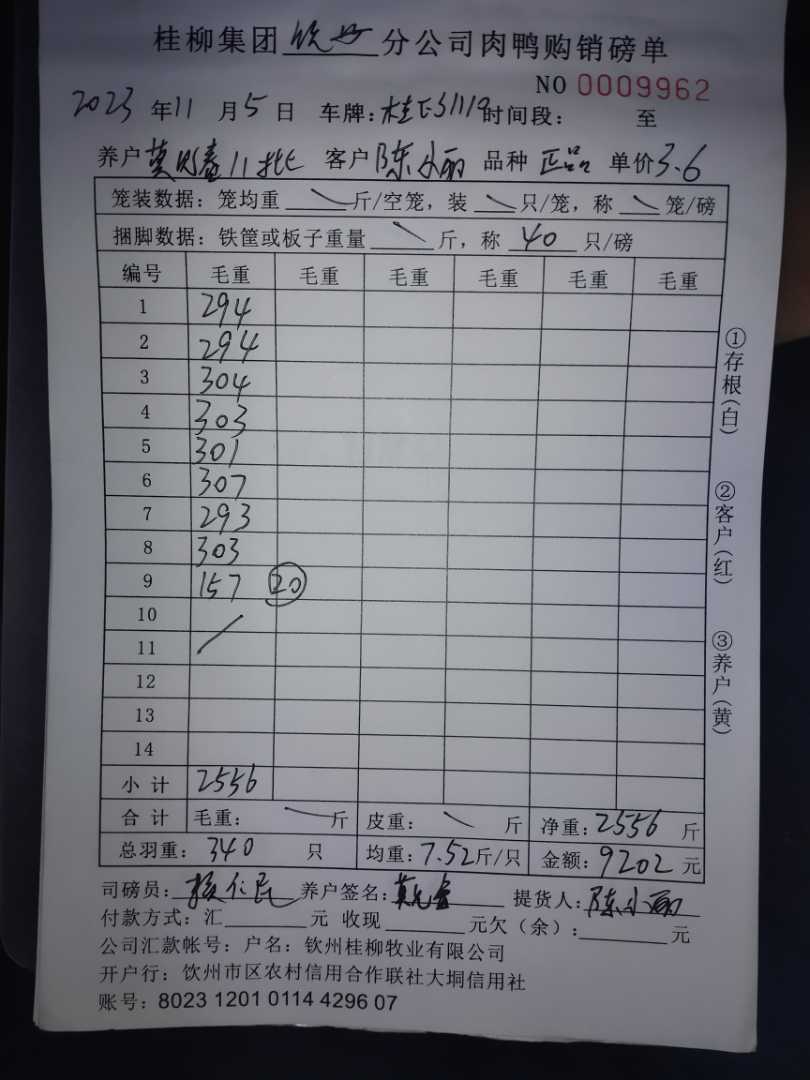 桂柳集团 钦 分公司肉鸭购销磅单
NO 0009962
2023 年 11 月 5 日 车牌: 时间段: 至
养户 11批 客户 陈小丽 品种 正品 单价 3.6
笼装数据: 笼均重 斤/空笼, 装 只/笼, 称 笼/磅
捆脚数据: 铁筐或板子重量 斤, 称 40 只/磅
编号 毛重 毛重 毛重 毛重 毛重 毛重
1 294
2 294
3 304
4 303
5 301
6 307
7 293
8 303
9 157 20
10
11
12
13
14
小计 2556
合计 毛重: 斤 皮重: 斤 净重: 2556 斤
总羽重: 340 只 均重: 7.52 斤/只 金额: 9202 元
司磅员: 养户签名: 提货人: 陈小丽
付款方式: 汇 元 收现 元欠(余): 元
公司汇款帐号: 户名: 钦州桂柳牧业有限公司
开户行: 钦州市区农村信用合作联社大垌信用社
账号: 8023 1201 0114 4296 07
①存根(白)
②客户(红)
③养户(黄)